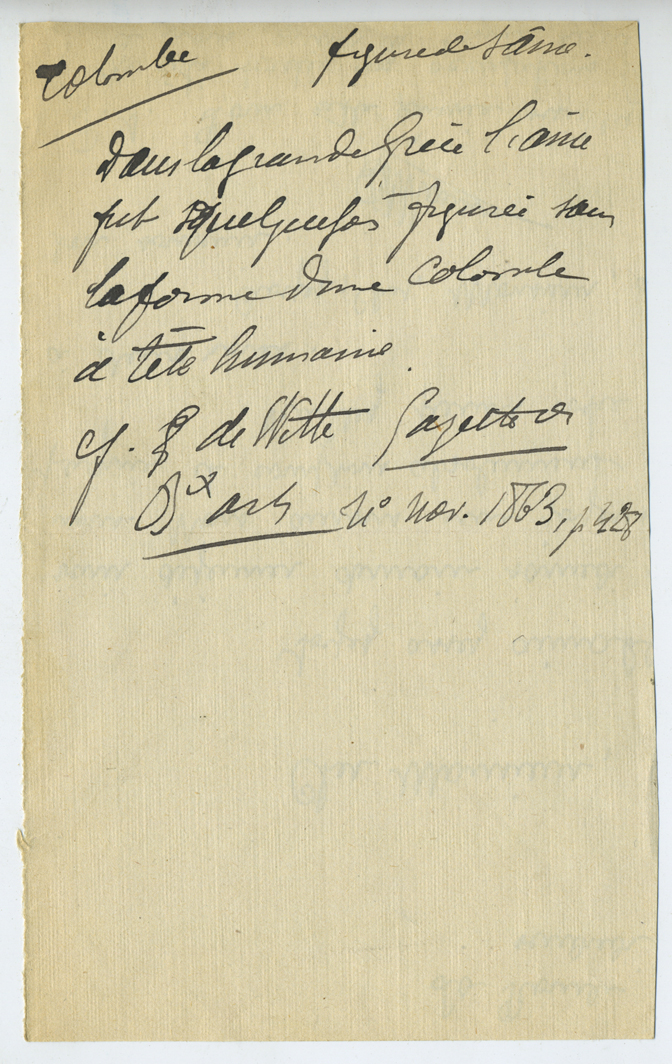 Colombe figure de l'âme.
Dans la grande Grèce l'âme
fut quelquefois figurée sous
la forme d'une Colombe
à tête humaine.
cf. de Witte Gazette des
Bx arts No nov. 1863, p. 428